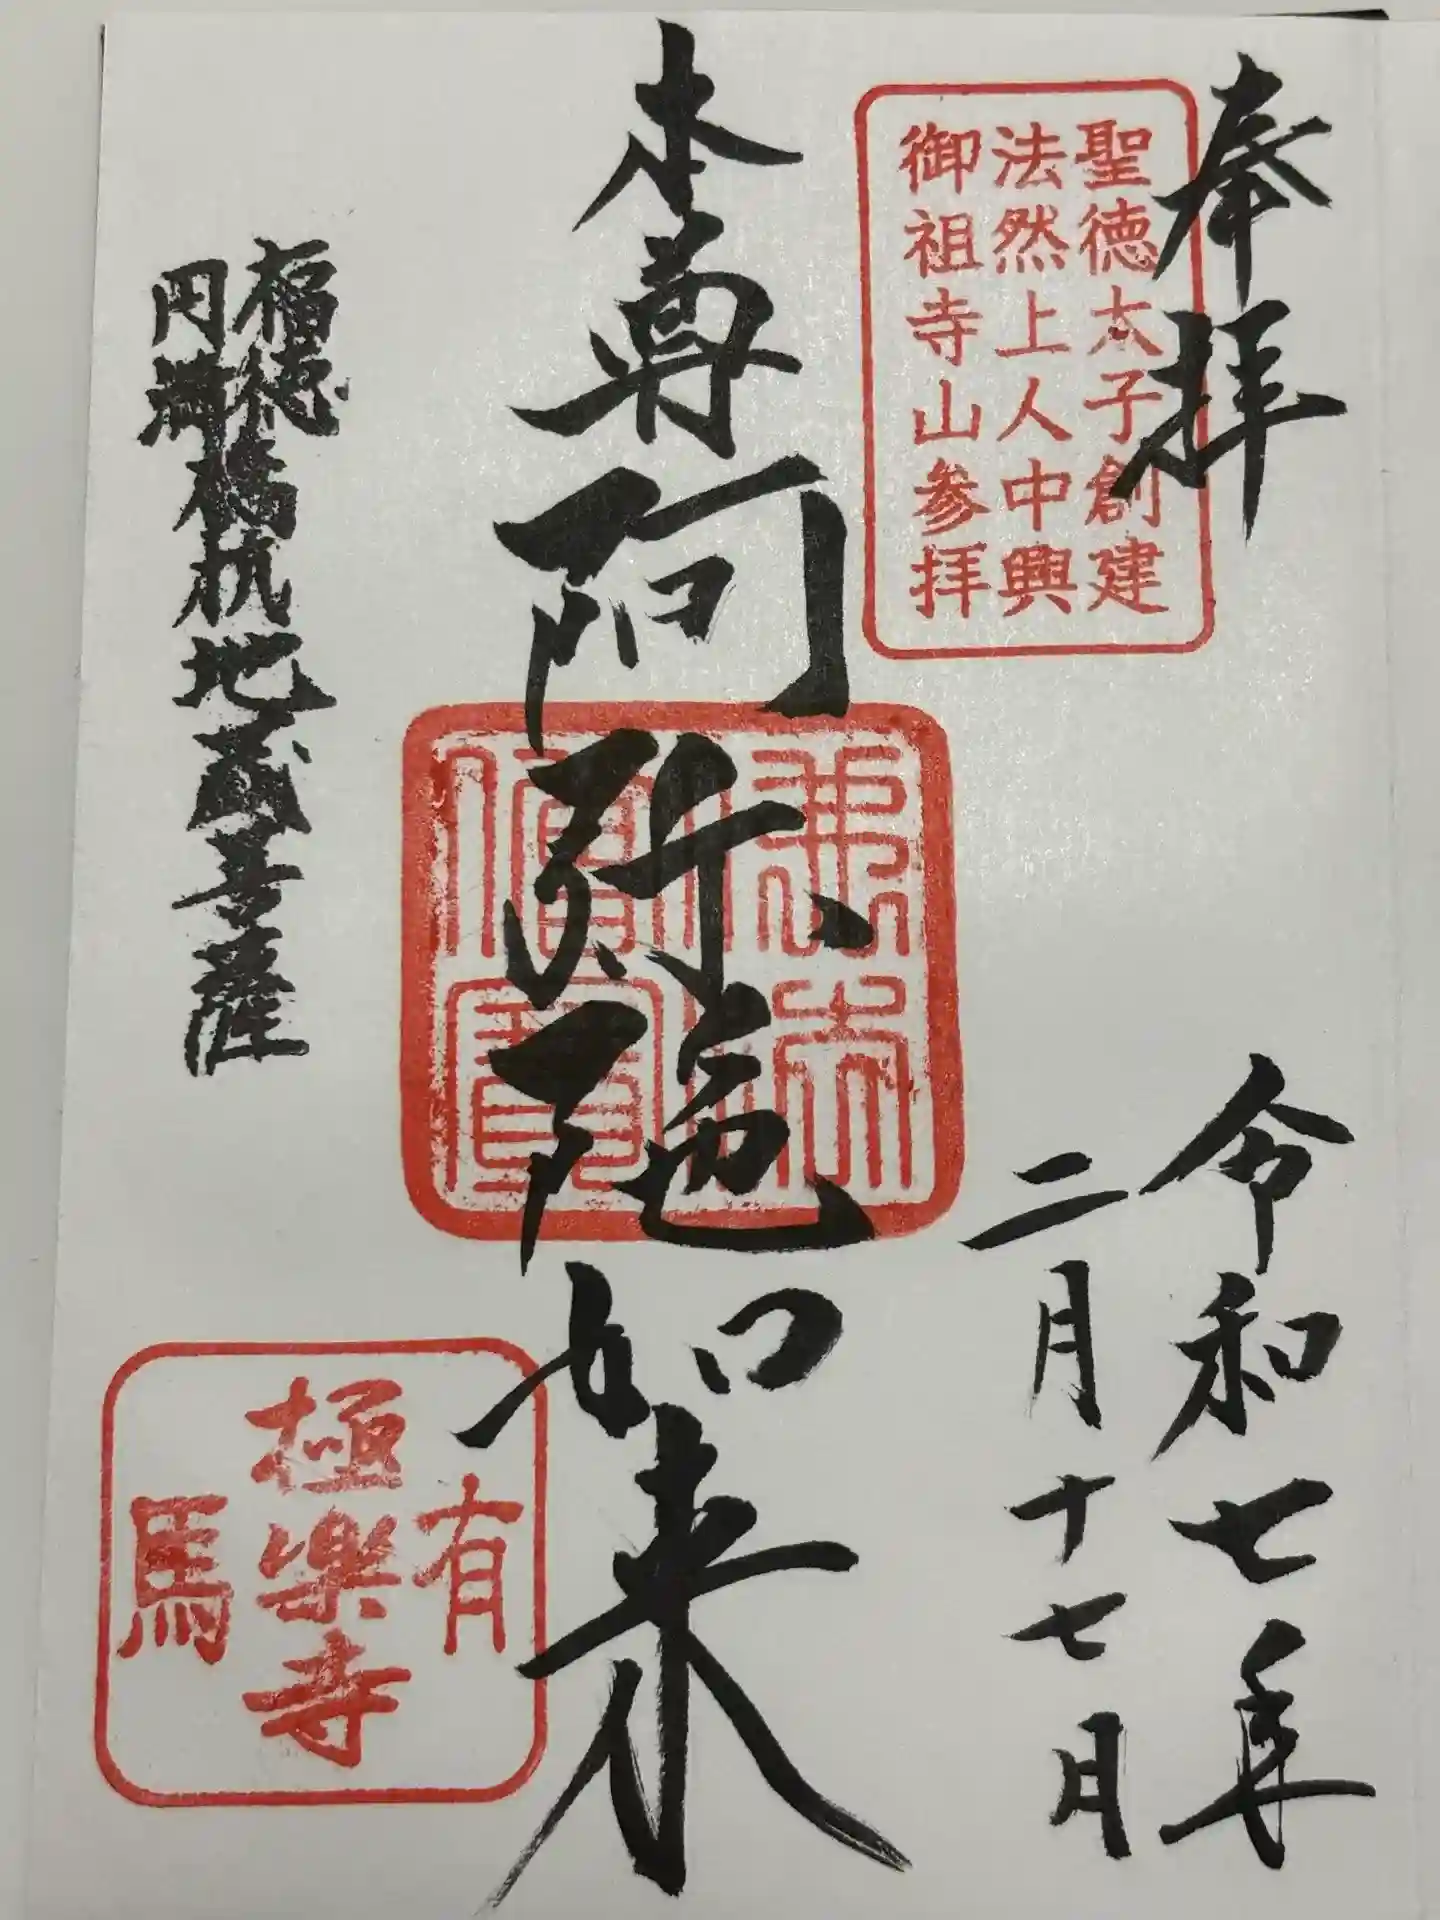 奉拝
聖徳太子創建
法然上人中興
御祖寺山参拝
令和七年
二月十七日
本尊阿弥陀如来
福徳
円満
橋杭地蔵菩薩
有馬
極楽寺